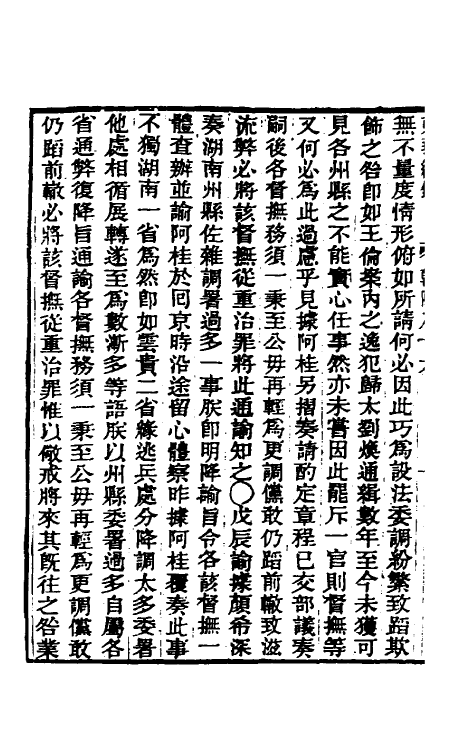 無不量度情形俯如所請何必因此巧爲設法委調紛繁致蹈欺
飾之咎卽如王倫案內之逸犯歸太劉煥通緝數年至今未獲可
見各州縣之不能實心任事然亦未嘗因此罷斥一官則督撫等
又何必爲此過慮乎見據阿桂另摺奏請酌定章程巳交部議奏
嗣後各督撫務須一秉至公毋再輕爲更調儻敢仍蹈前轍致滋
流弊必將該督撫從重治罪將此通諭知之〇戊辰諭據顏希深
奏湖南州縣佐雜調署過多一事朕卽明降諭旨令各該督撫一
體查辦並諭阿桂於囘京時沿途留心體察昨據阿桂覆奏此事
不獨湖南一省爲然卽如雲貴二省緣逃兵處分降調太多委署
他處相循展轉遂至爲數漸多等語朕以州縣委署過多自屬各
省通弊復降旨通諭各督撫務須一秉至公毋再輕爲更調儻敢
仍蹈前轍必將該督撫從重治罪惟以儆戒將來其旣往之咎業